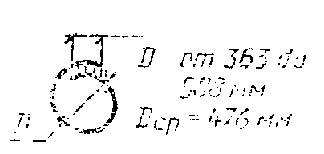 D от 363 до
508 мм
Dср = 476 мм
D